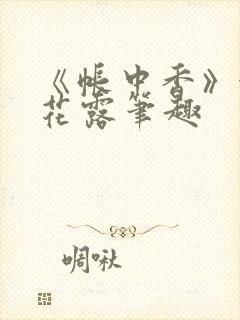 《帐中香》
花露笔趣
啁啾